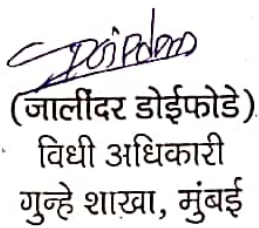 (जालींदर डोईफोडे)
विधी अधिकारी
गुन्हे शाखा, मुंबई